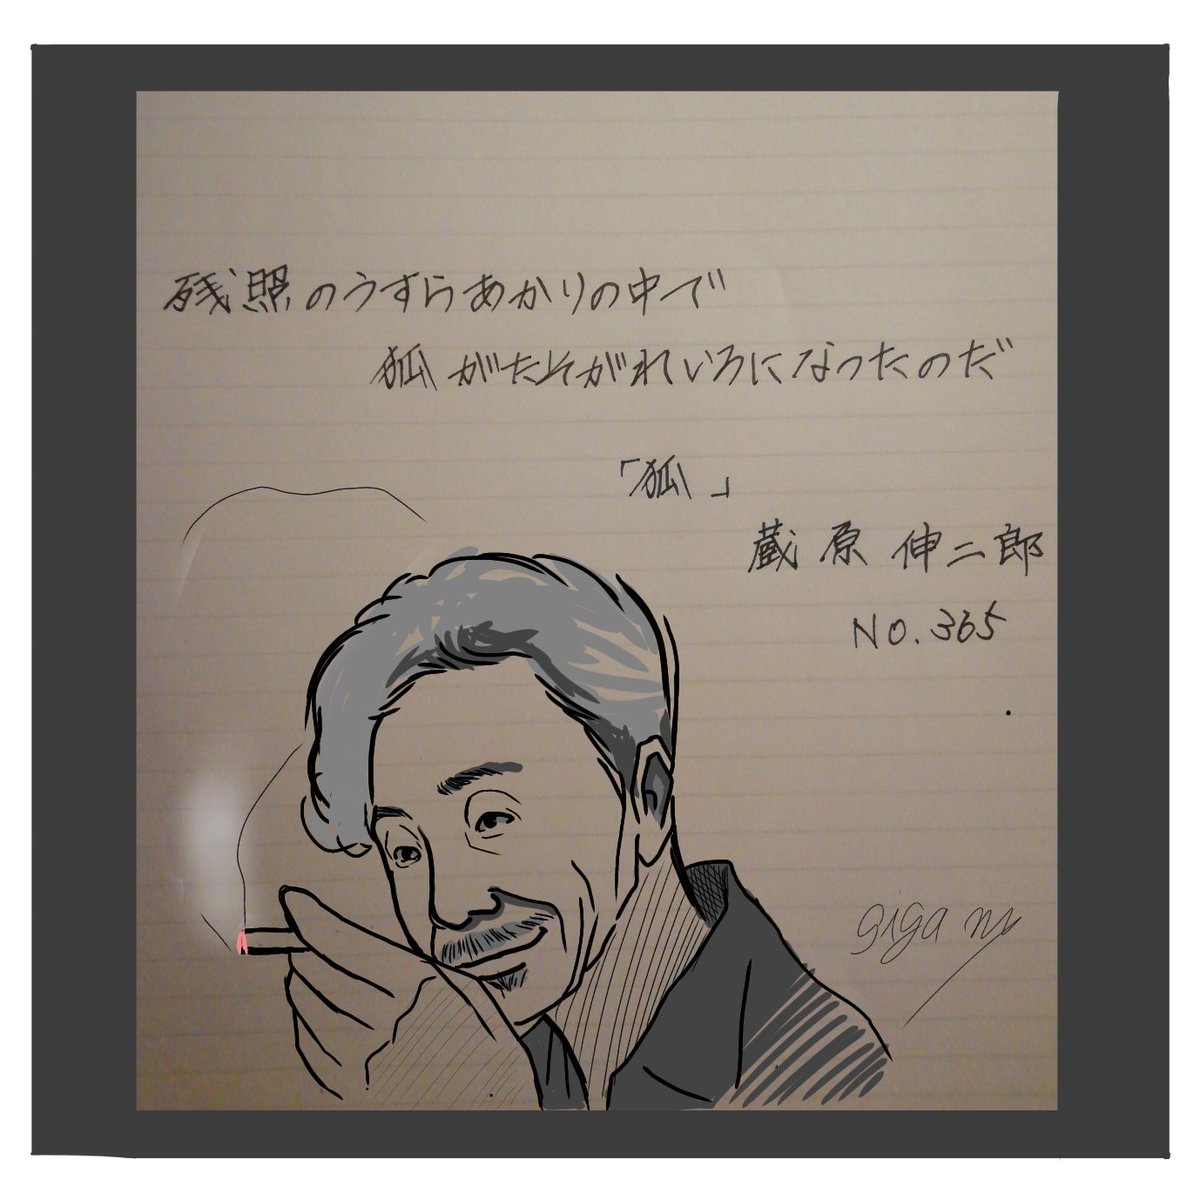 残照のうすらあかりの中で
狐がたそがれいろになったのだ
「狐」
蔵原伸二郎
NO.365
giga ny